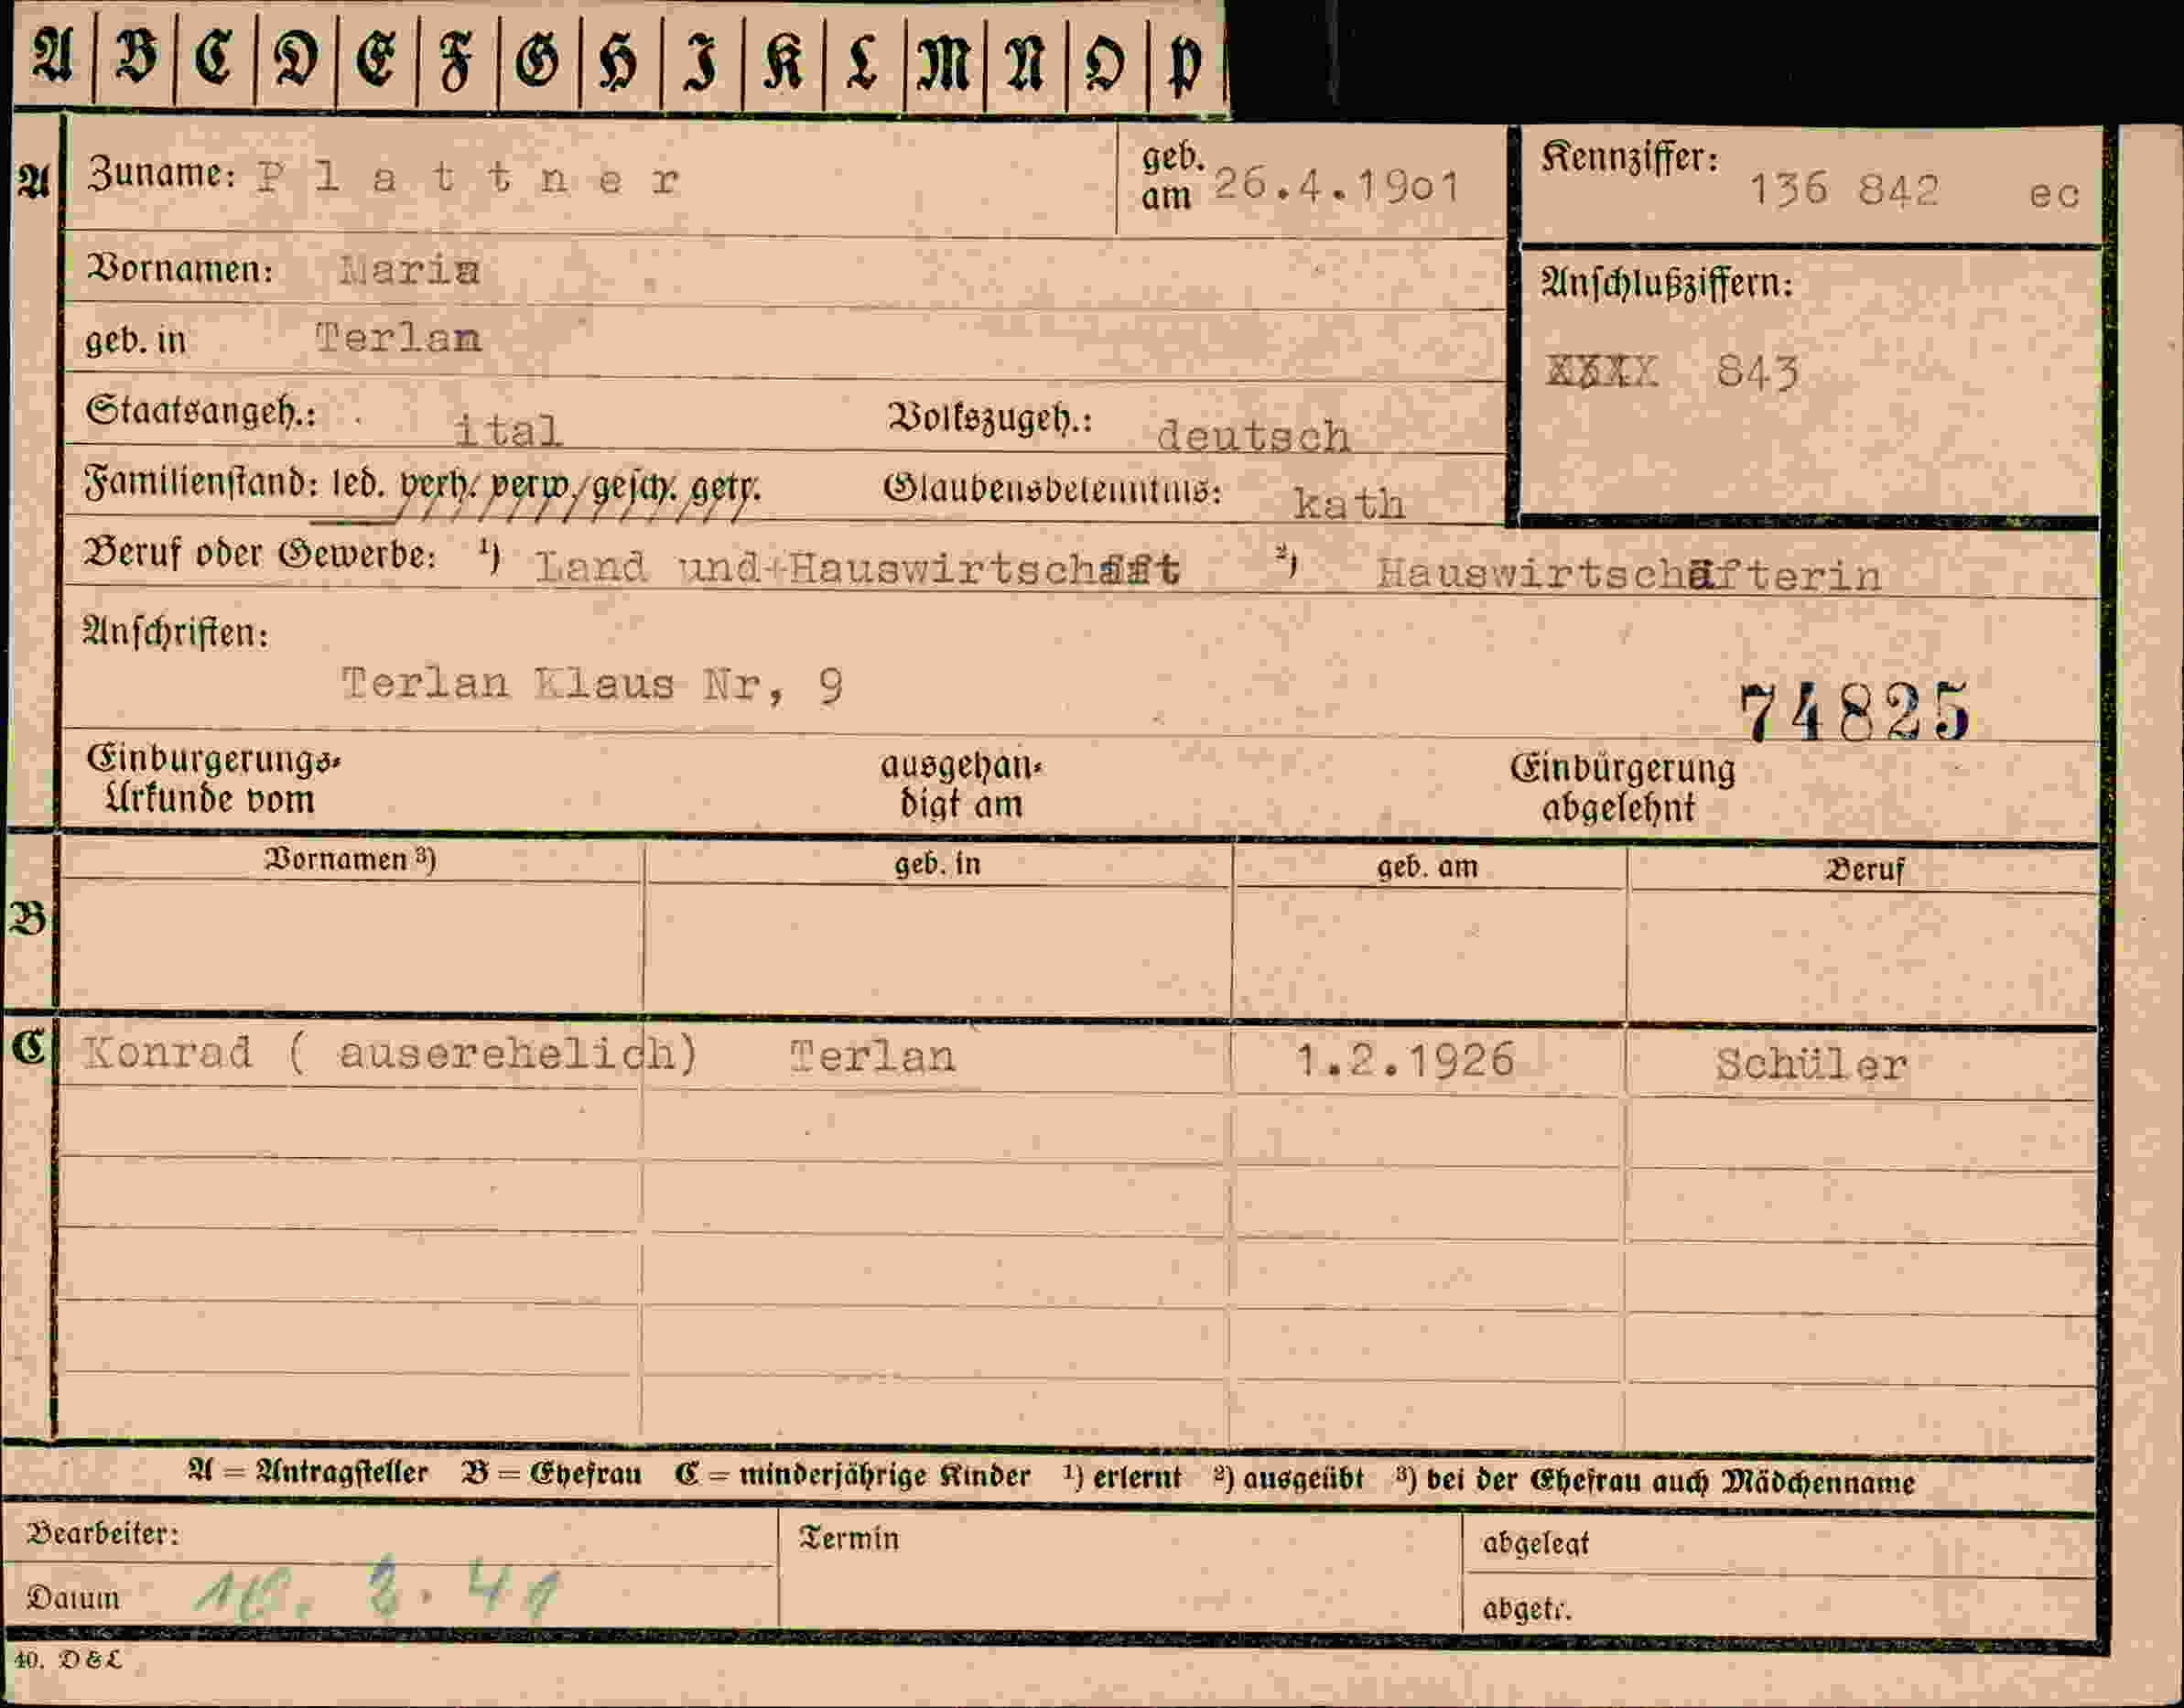 A B C D E F G H I K L M N O P
A Zuname: Plattner geb. am 26.4.1901 Kennziffer: 136 842 ec
Vornamen: Maria
Anschlußziffern:
geb. in Terlan
XXXX 843
Staatsangeh.: ital Volkszugeh.: deutsch
Familienstand: led. verh. verw. gesch. getr. Glaubensbekenntnis: kath
Beruf oder Gewerbe: 1) Land und Hauswirtschaft 2) Hauswirtschafterin
Anschriften:
Terlan Klaus Nr, 9
74825
Einbürgerungs-
Urkunde vom
ausgehän-
digt am
Einbürgerung
abgelehnt
Vornamen 3) geb. in geb. am Beruf
B
C Konrad ( auserehelich) Terlan 1.2.1926 Schüler
A = Antragsteller B = Ehefrau C = minderjährige Kinder 1) erlernt 2) ausgeübt 3) bei der Ehefrau auch Mädchenname
Bearbeiter: Termin abgelegt
Datum abgetr.
40. D&L